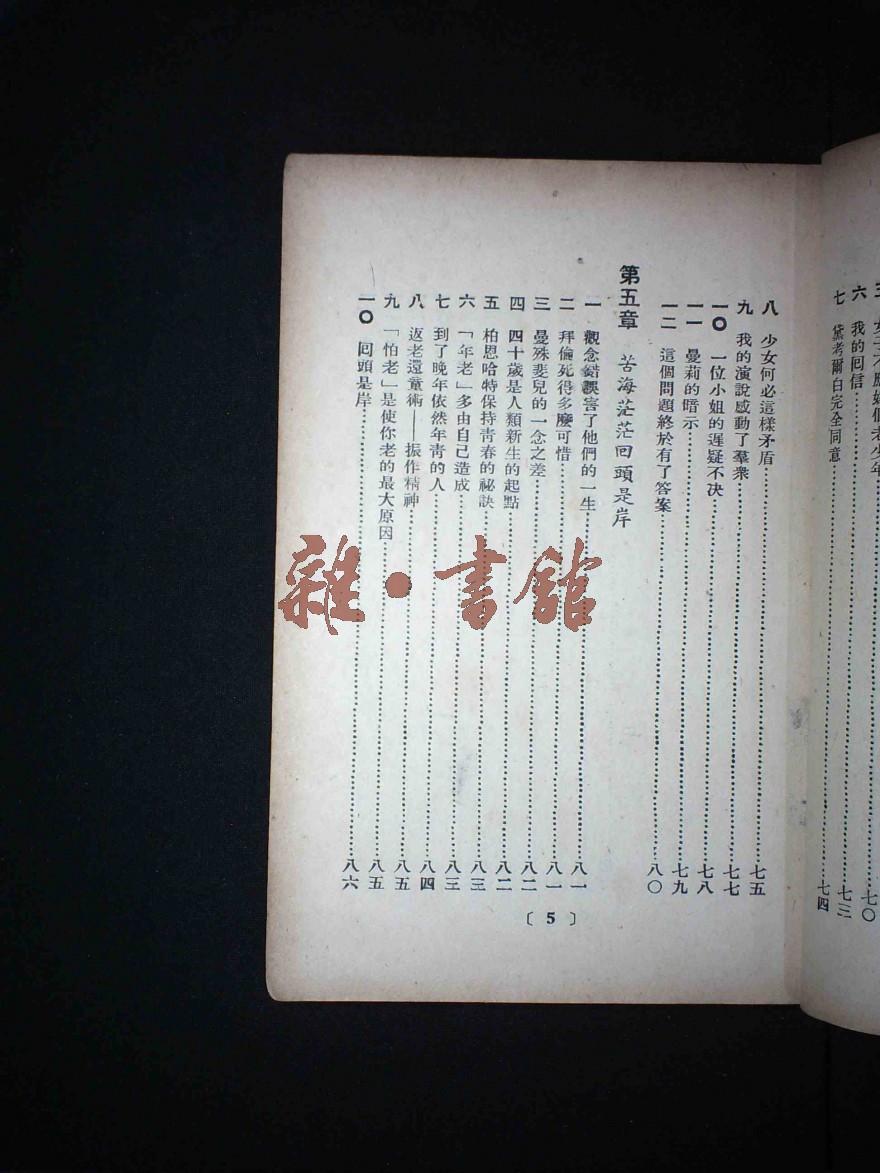 六 我的囘信……七三
七 黛考爾白完全同意……七四
八 少女何必這樣矛盾……七五
九 我的演說感動了羣衆……七七
一〇 一位小姐的遲疑不决……七八
一一 曼莉的暗示……七九
一二 這個問題終於有了答案……八〇
第五章 苦海茫茫回頭是岸
一 觀念錯誤害了他們的一生……八一
二 拜倫死得多麼可惜……八一
三 曼殊斐兒的一念之差……八二
四 四十歲是人類新生的起點……八二
五 柏恩哈特保持青春的祕訣……八三
六 「年老」多由自己造成……八三
七 到了晚年依然年青的人……八四
八 返老還童術——振作精神……八五
九 「怕老」是使你老的最大原因……八五
一〇 囘頭是岸……八六
〔5〕
雜·書館